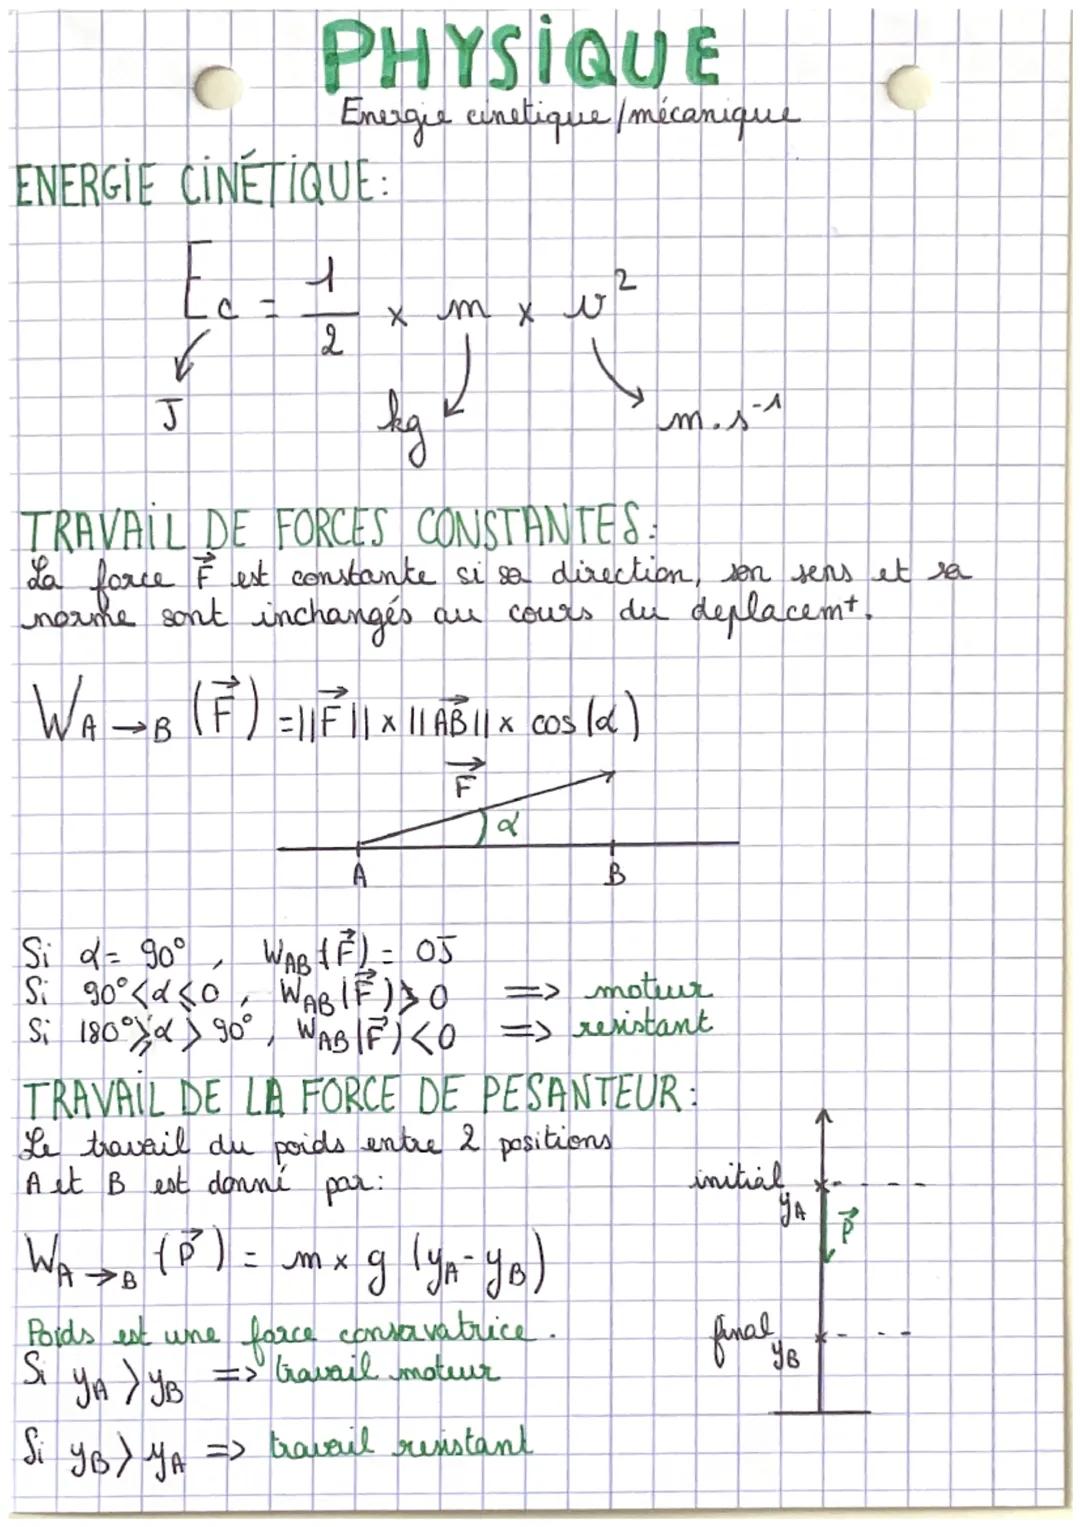 PHYSIQUE
Energie cinetique/mécanique
ENERGIE CINÉTIQUE:
Ec = 1/2 × m × v²
J
kg
m.s⁻¹
TRAVAIL DE FORCES CONSTANTES:
La force F⃗ est constante si sa direction, son sens et sa
norme sont inchangés au cours du deplacemt.
W A→B (F⃗) = ||F⃗|| × ||AB⃗|| × cos(α)
F⃗
α
A B
Si α = 90°, WAB(F⃗) = 0J
Si 90°<α≤0, WAB(F⃗)>0 => moteur
Si 180°≥α>90°, WAB(F⃗)<0 => resistant
TRAVAIL DE LA FORCE DE PESANTEUR:
Le travail du poids entre 2 positions
A et B est donné par:
W A→B (P⃗) = m × g (yA - yB)
Poids est une force conservatrice.
Si yA > yB => travail moteur
Si yB > yA => travail resistant
initial
yA
P⃗
final
yB